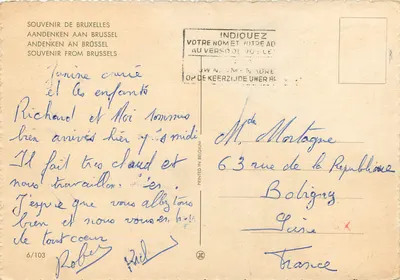 SOUVENIR DE BRUXELLES
AANDENKEN AAN BRUSSEL
ANDENKEN AN BRÜSSEL
SOUVENIR FROM BRUSSELS
INDIQUEZ
VOTRE NOM ET VOTRE AD
AU VERSO DE
OP DE KEERZIJDE UWER
et les enfants
Richard et Moi sommes
bien arrivés hier midi
Il fait très chaud et
nous travaillons
J'espère que vous allez tous
bien et nous vous en
de tout coeur
6/103
PRINTED IN BELGIUM
Mortagne
63 rue de la République
Bobigny
Seine
France